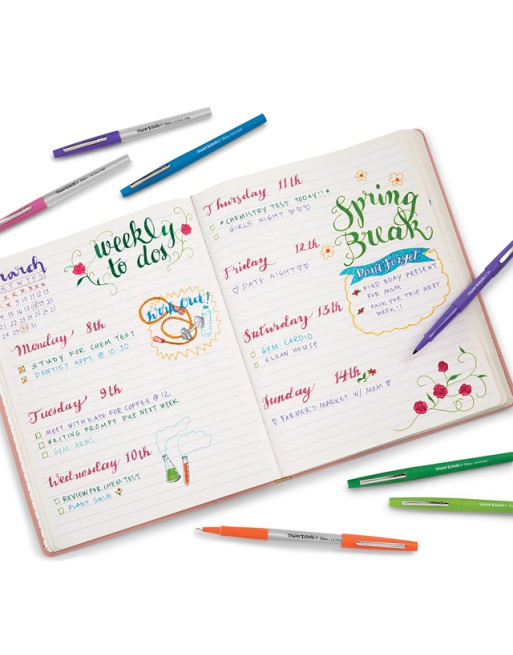 weekly
to dos
March
Monday, 8th
STUDY FOR CHEM TEST
DENTIST APPT. @ 10:30
work out!
Tuesday 9th
MEET WITH KATE FOR COFFEE @ 12
WRITING PROMPT DUE NEXT WEEK
GYM: ARMS
Wednesday 10th
REVIEW FOR CHEM TEST
PLANT SALE
Thursday 11th
*CHEMISTRY TEST TODAY!!*
GIRLS NIGHT ♡♡♡
Friday 12th
♡ DATE NIGHT ♡♡
Saturday 13th
GYM: CARDIO
CLEAN HOUSE
Sunday 14th
♡ FARMER'S MARKET W/ MOM ♡
Spring
Break
Don't Forget
FIND BDAY PRESENT
FOR MOM
PACK FOR TRIP NEXT
WEEK!!
Paper Mate
Paper Mate
Paper Mate
Paper Mate
Paper Mate
Paper Mate